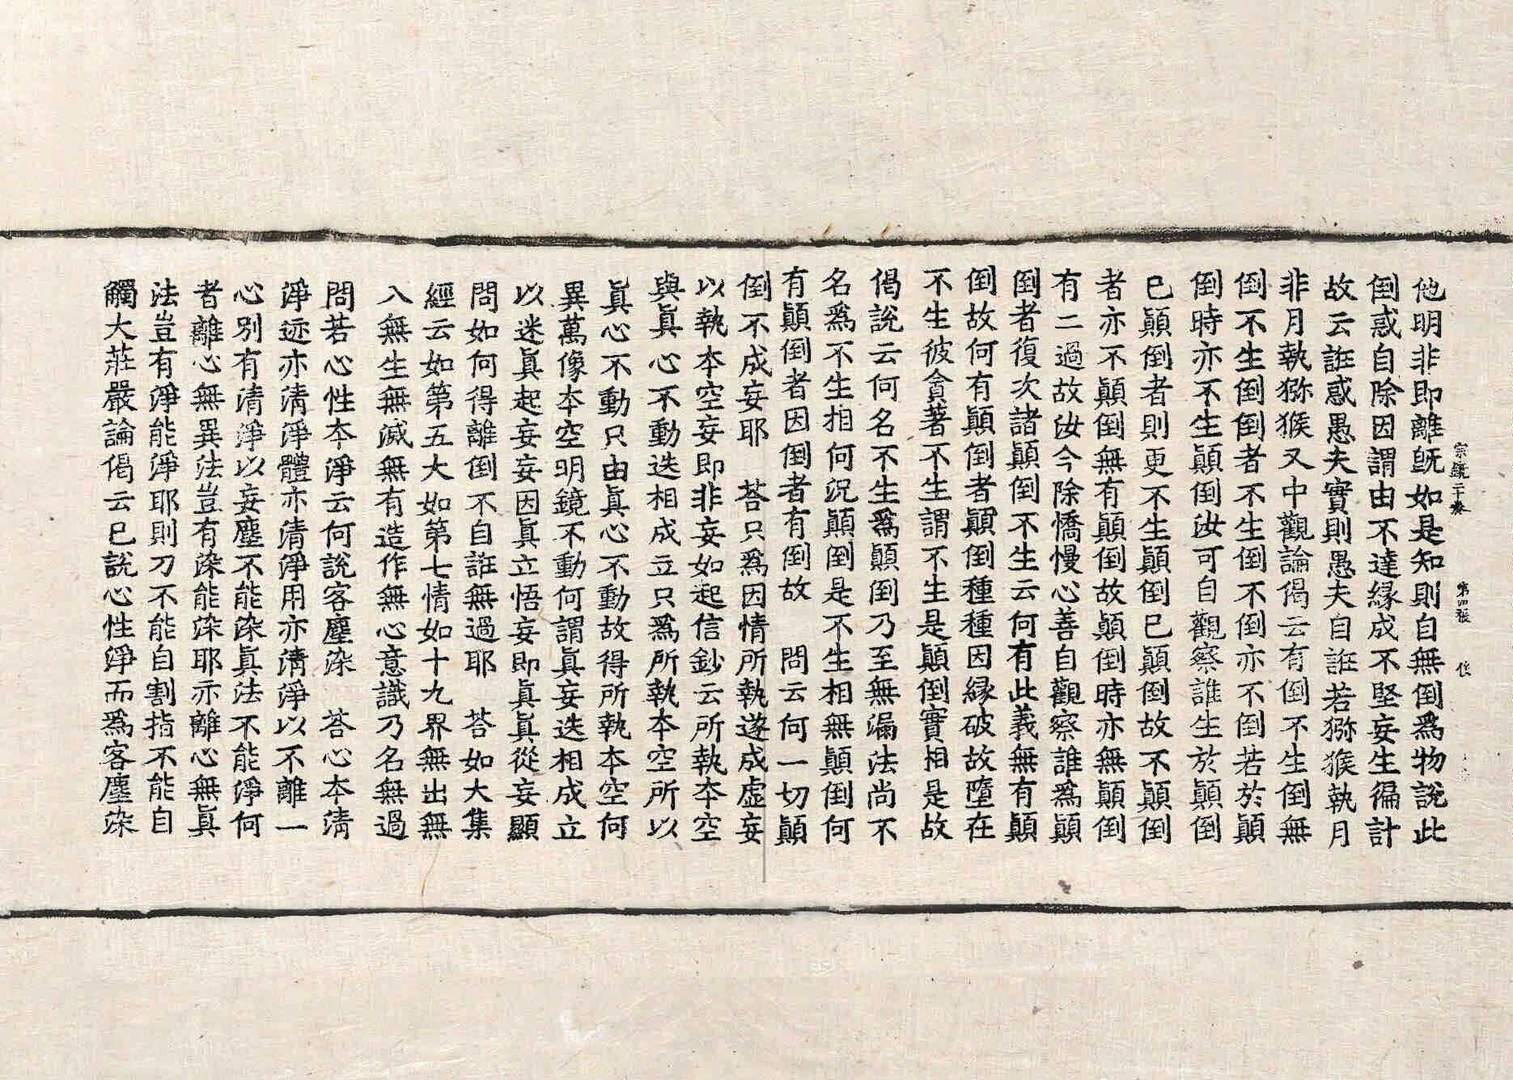 宗鏡二十
第四張
他明非即離旣如是知則自無倒爲物說此
倒惑自除因謂由不達緣成不堅妄生徧計
故云誑惑愚夫實則愚夫自誑若獼猴執月
非月執獼猴又中觀論偈云有倒不生倒無
倒不生倒倒者不生倒不倒亦不倒若於顚
倒時亦不生顚倒汝可自觀察誰生於顚倒
已顚倒者則更不生顚倒已顚倒故不顚倒
者亦不顚倒無有顚倒故顚倒時亦無顚倒
有二過故汝今除憍慢心善自觀察誰爲顚
倒者復次諸顚倒不生云何有此義無有顚
倒故何有顚倒者顚倒種種因緣破故墮在
不生彼貪著不生謂不生是顚倒實相是故
偈說云何名不生爲顚倒乃至無漏法尚不
名爲不生相何況顚倒是不生相無顚倒何
有顚倒者因倒者有倒故　問云何一切顚
倒不成妄耶　荅只爲因情所執遂成虛妄
以執本空妄即非妄如起信鈔云所執本空
與眞心不動迭相成立只爲所執本空所以
眞心不動只由眞心不動故得所執本空何
異萬像本空明鏡不動何謂眞妄迭相成立
以迷眞起妄妄因眞立悟妄即眞眞從妄顯
問如何得離倒不自誑無過耶　荅如大集
經云如第五大如第七情如十九界無出無
入無生無滅無有造作無心意識乃名無過
問若心性本淨云何說客塵染　荅心本清
淨迹亦清淨體亦清淨用亦清淨以不離一
心別有清淨以妄塵不能染眞法不能淨何
者離心無異法豈有染能染耶亦離心無眞
法豈有淨能淨耶則刀不能自割指不能自
觸大莊嚴論偈云已說心性淨而爲客塵染